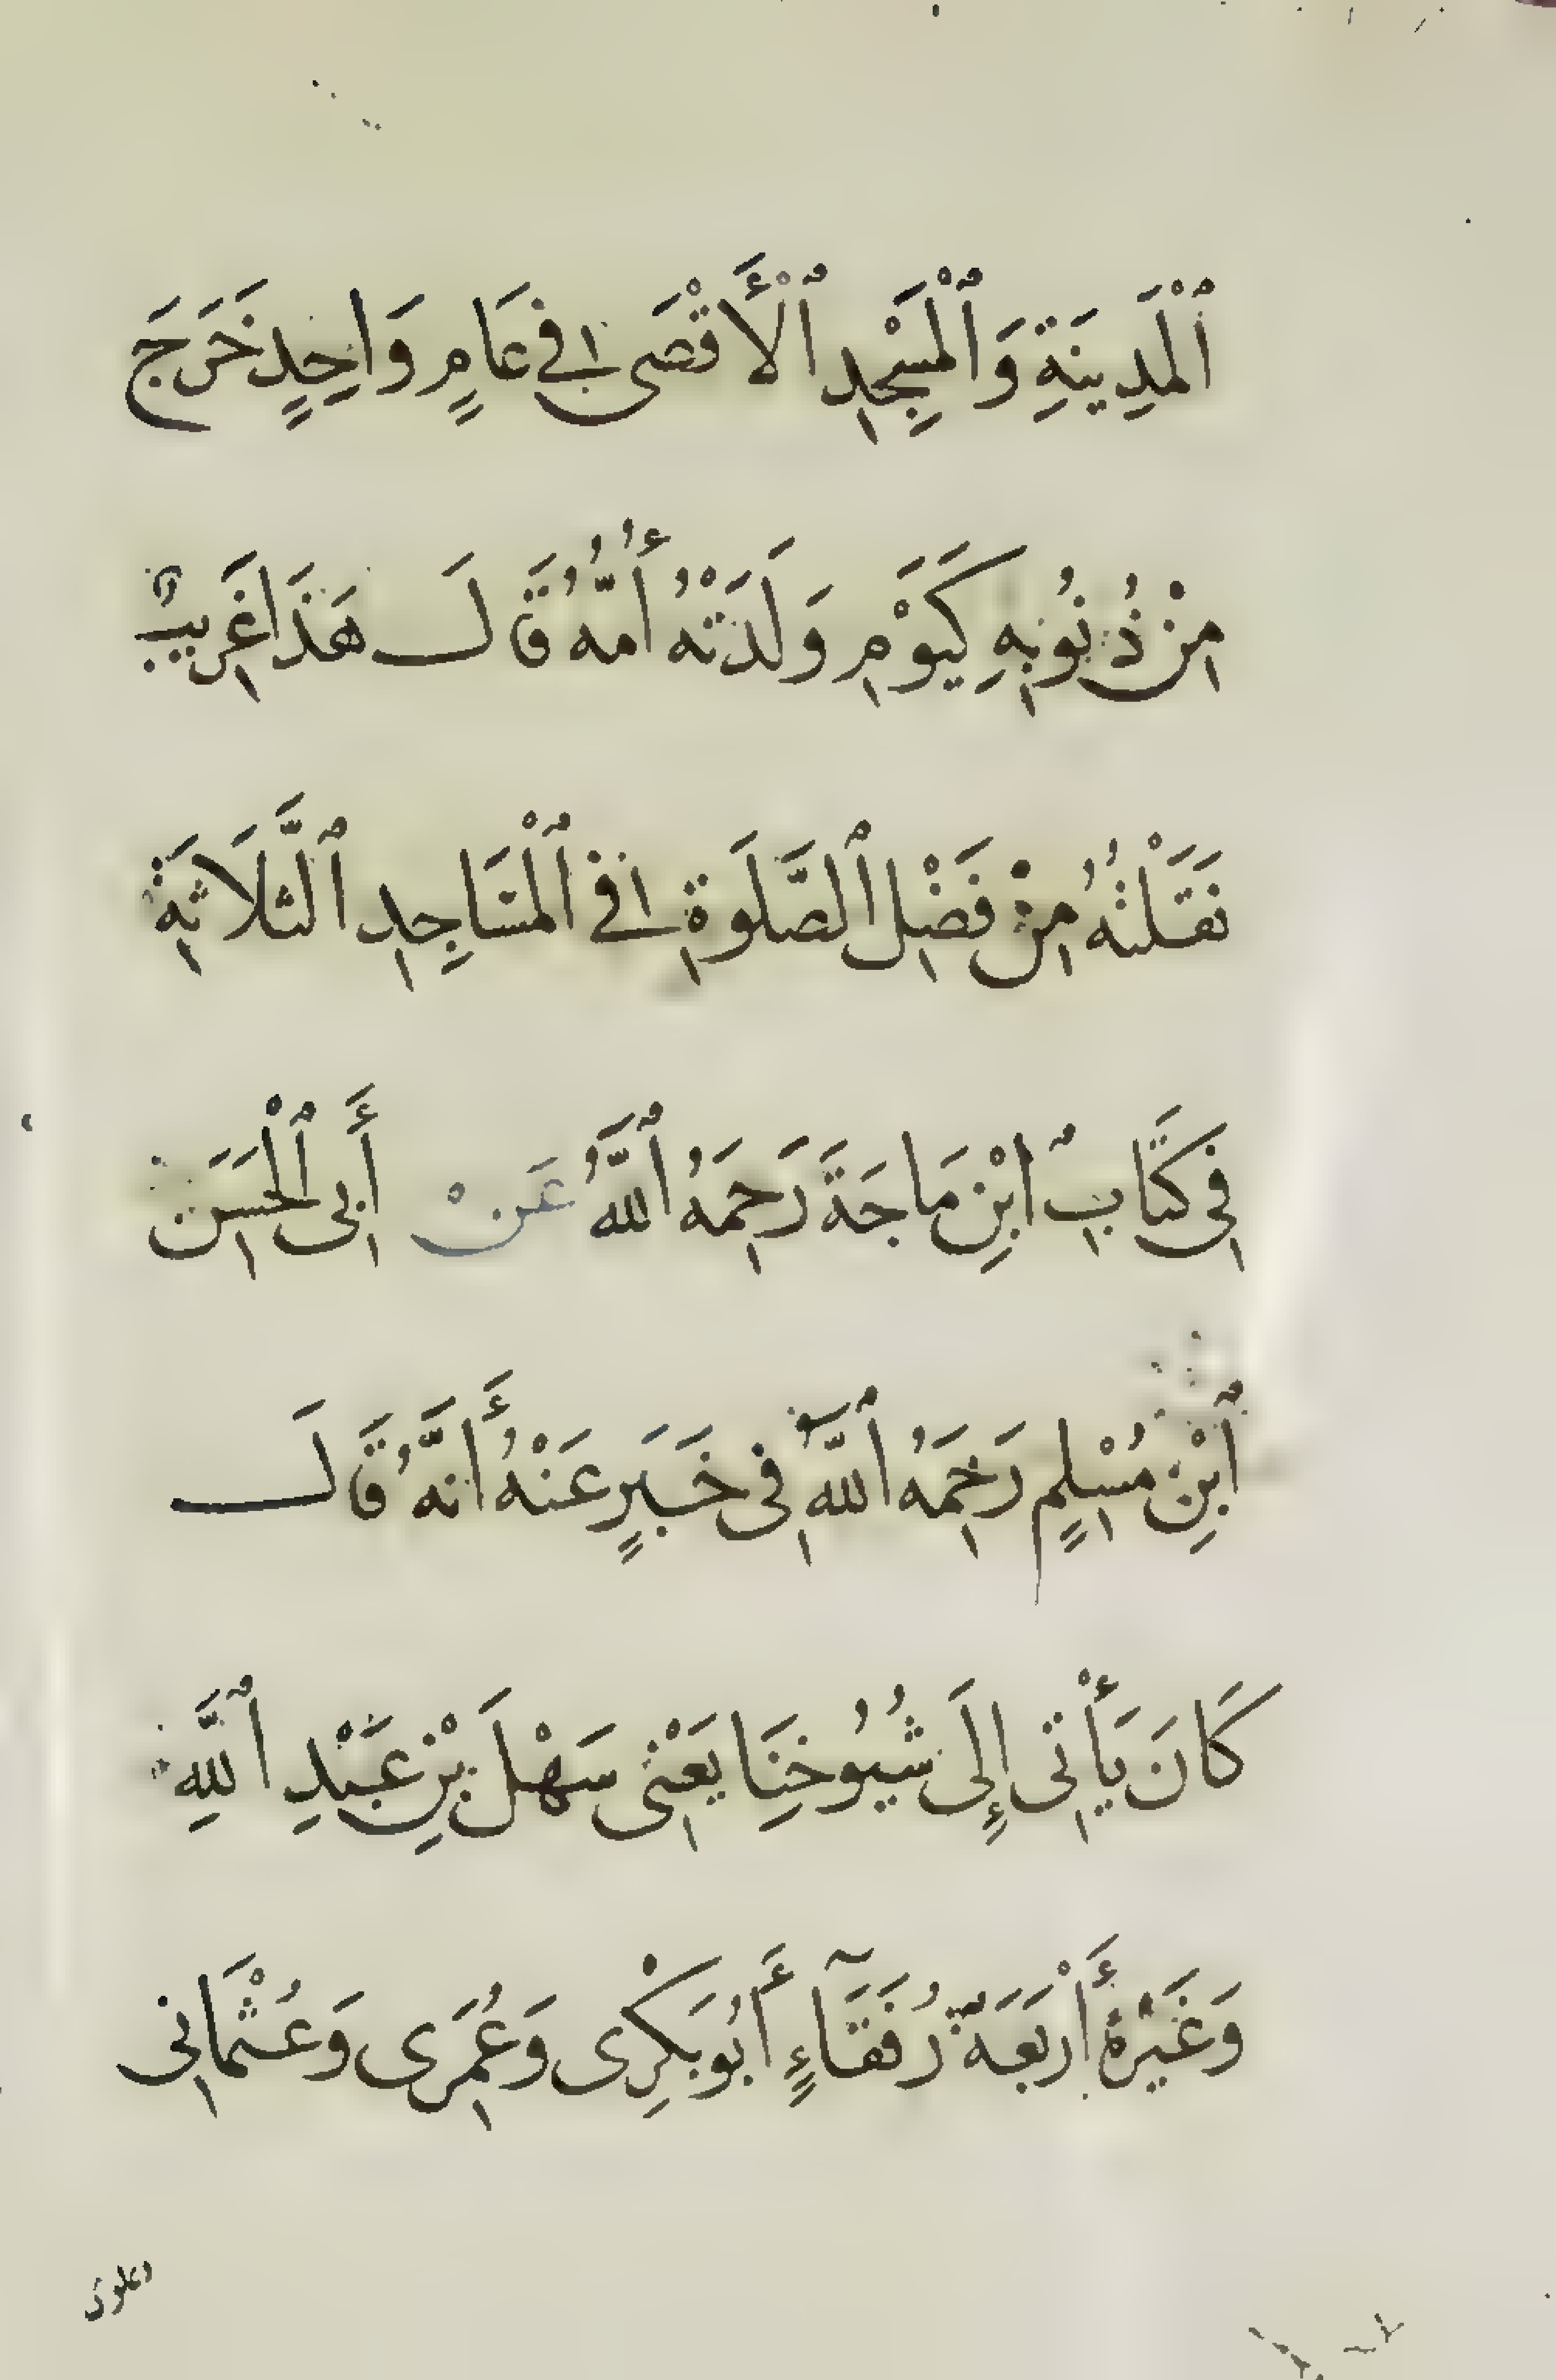 ٱلْمَدِينَةِ وَٱلْمَسْجِدِ ٱلْأَقْصَى فِي عَامٍ وَاحِدٍ خَرَجَ
مِنْ ذُنُوبِهِ كَيَوْمِ وَلَدَتْهُ أُمُّهُ قَالَ هَذَا غَرِيبٌ
نَقَلْتُهُ مِنْ فَضْلِ ٱلصَّلَوةِ فِي ٱلْمَسَاجِدِ ٱلثَّلَاثَةِ
فِي كِتَابِ ٱبْنِ مَاجَةَ رَحِمَهُ ٱللَّهُ عَنْ أَبِي ٱلْحَسَنِ
ٱبْنِ مُسْلِمٍ رَحِمَهُ ٱللَّهُ فِي خَبَرٍ عَنْهُ أَنَّهُ قَالَ
كَانَ يَأْتِي إِلَى شُيُوخِنَا يَعْنِي سَهْلَ بْنِ عَبْدِ ٱللَّهِ
وَغَيْرُهُ أَرْبَعَةٌ رُفَقَآءٍ أَبُو بَكْرِى وَعُمَرِى وَعُثْمَانِى
وعلوى